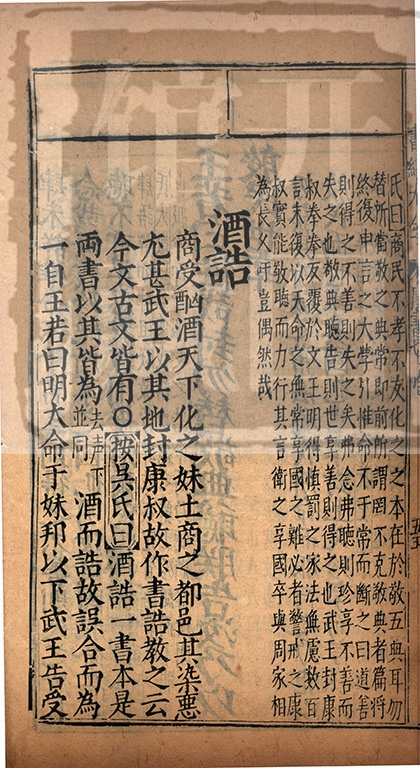 氏曰商民不孝不友化之之本在於敬五典耳勿
替所當敬之典常即前所謂罔不克敬典者篇將
終復申言之大學引惟命不于常而斷之曰道善
則得之不善則失之矣弗念弗聽則殄享不善而
失之也敬典聽告則世享善則得之也武王封康
叔拳拳反覆於文王明得慎罰之家法無慮數百
言末復以天命之無常享國之難必者警戒之康
叔實能敬聽而力行其言衛之享國卒與周家相
為長久吁豈偶然哉
酒誥
商受酗酒天下化之妹土商之都邑其染惡
尤甚武王以其地封康叔故作書誥教之云
今文古文皆有○按吳氏曰酒誥一書本是
兩書以其皆為去声下並同酒而誥故誤合而為
一自王若曰明大命于妹邦以下武王告受